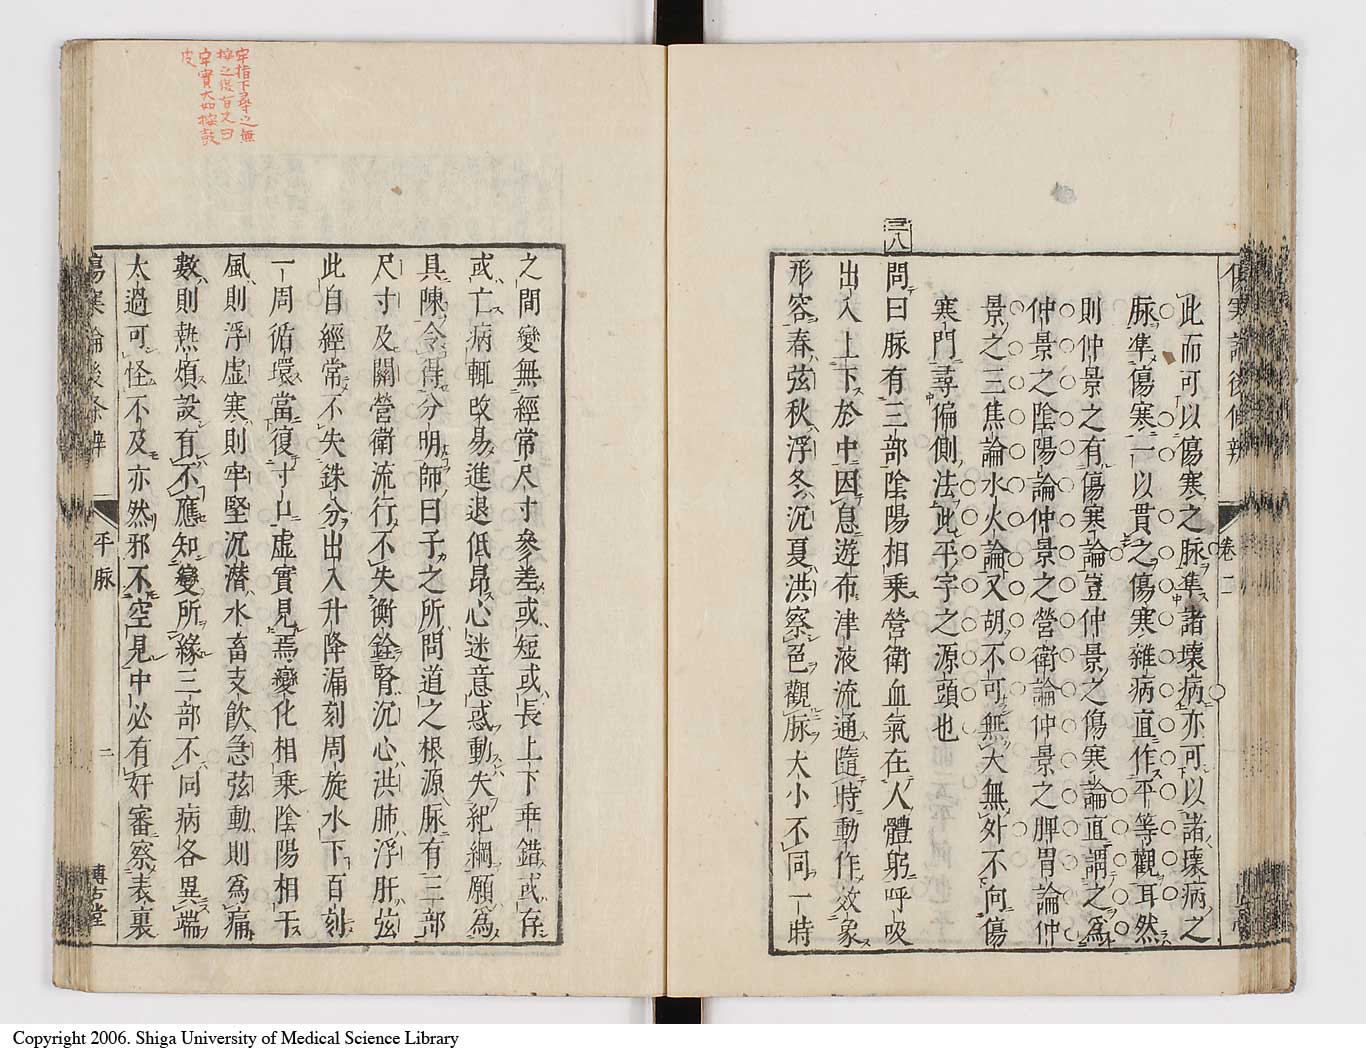 傷寒論後條辨
卷二
此而可以傷寒之脉準諸壞病亦可以諸壞病之
脉準傷寒一以貫之傷寒雜病直作平等觀耳然
則仲景之有傷寒論豈仲景之傷寒論直謂之爲
仲景之陰陽論仲景之營衛論仲景之脾胃論仲
景之三焦論水火論又胡不可無大無外不向傷
寒門尋偏側法此平字之源頭也
三八
問曰脉有三部陰陽相乘營衛血氣在人體躬呼吸
出入上下於中因息遊布津液流通隨時動作效象
形容春弦秋浮冬沉夏洪察色觀脉大小不同一時
牢指下尋之無
按之復有又曰
牢實大如按鼓
皮
之間變無經常尺寸參差或短或長上下乖錯或存
或亡病輒改易進退低昂心迷意惑動失紀綱願爲
具陳令得分明師曰子之所問道之根源脉有三部
尺寸及關營衛流行不失衡銓腎沉心洪肺浮肝弦
此自經常不失銖分出入升降漏刻周旋水下百刻
一周循環當復寸口虛實見焉變化相乘陰陽相干
風則浮虛寒則牢堅沉潜水畜支飲急弦動則爲痛
數則熱煩設有不應知變所緣三部不同病各異端
太過可怪不及亦然邪不空見中必有奸審察表裏
傷寒論後條辨
平脉
二
博古堂